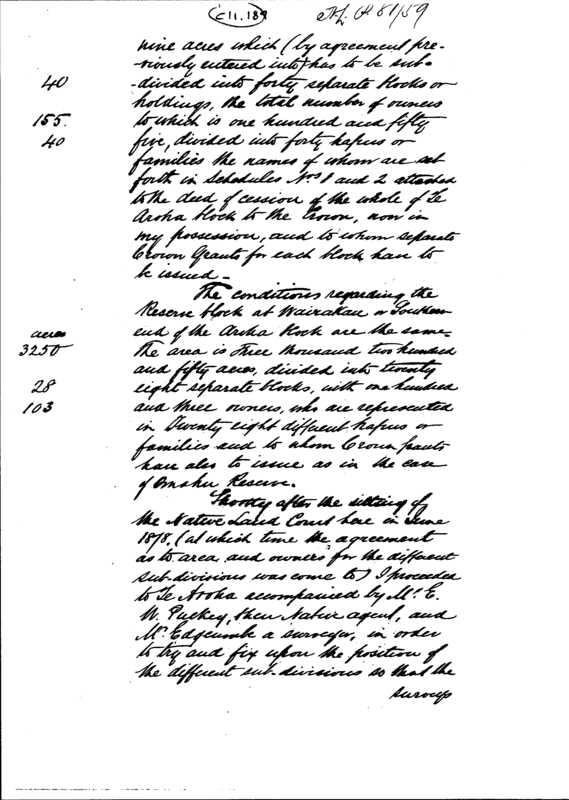 C 11. 189
81/59
nine acres which (by agreement pre-
viously entered into) has to be sub-
40 -divided into forty separate blocks or
holdings, the total number of owners
155. to which is one hundred and fifty
40 five, divided into forty hapus or
families the names of whom are set
forth in Schedules Nos 1 and 2 attached
to the deed of cession of the whole of Te
Aroha block to the Crown, now in
my possession, and to whom separate
Crown Grants for each block have to
be issued –
The conditions regarding the
Reserve block at Wairakau or Southern
acres end of the Aroha block are the same –
3250 The area is Three thousand two hundred
and fifty acres, divided into twenty
28 eight separate blocks, with one hundred
103 and three owners, who are represented
in Twenty eight different hapus or
families and to whom Crown grants
have also to issue as in the case
of Omahu Reserve.
Shortly after the sitting of
the Native Land Court here in June
1878. (at which time the agreement
as to area and owners for the different
sub-divisions was come to) I proceeded
to Te Aroha accompanied by Mr. E.
W. Puckey, then Native agent, and
Mr. Edgecumbe a surveyor, in order
to try and fix upon the position of
the different sub-divisions so that the
surveys